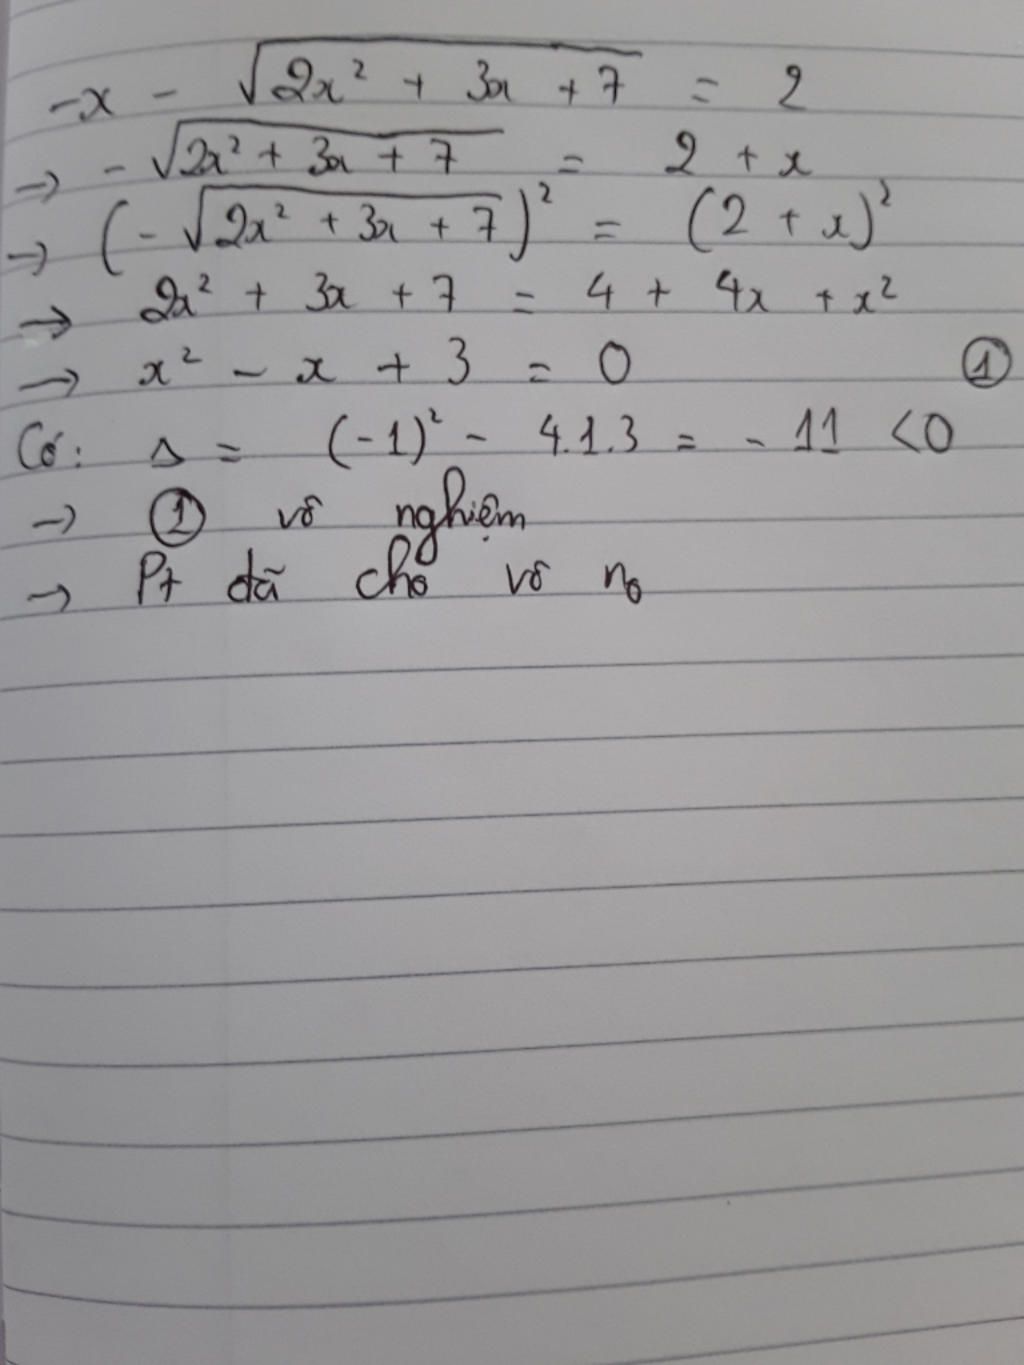 -x - √(2x² + 3x + 7) = 2
→ - √(2x² + 3x + 7) = 2 + x
→ (- √(2x² + 3x + 7))² = (2 + x)²
→ 2x² + 3x + 7 = 4 + 4x + x²
→ x² - x + 3 = 0 ①
Có: Δ = (-1)² - 4.1.3 = - 11 < 0
→ ① vô nghiệm
→ Pt đã cho vô n₀